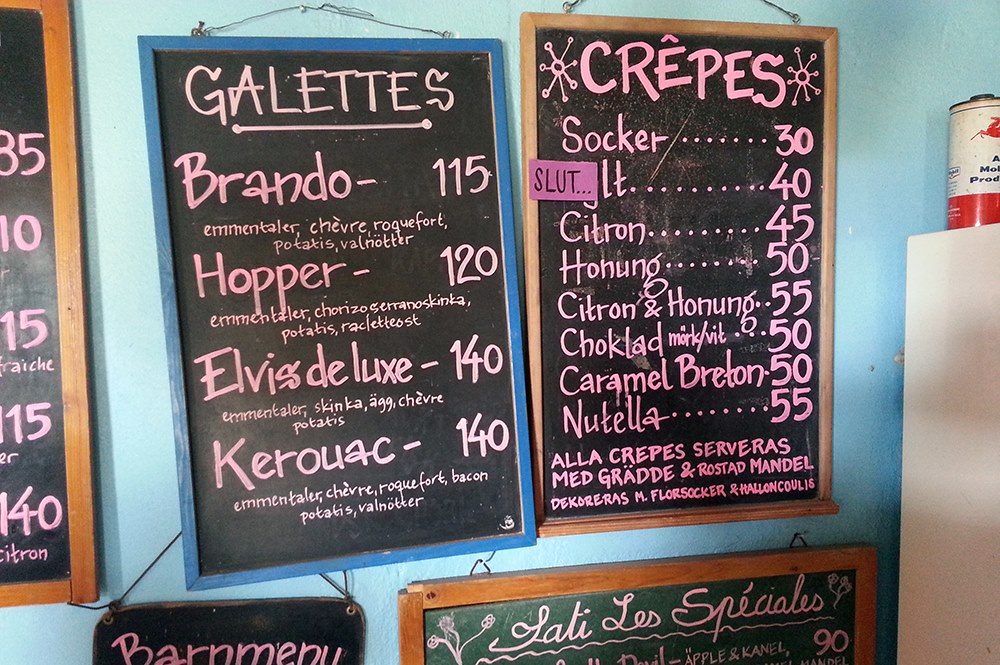 85
10
15
fraîche
115
140
citron
GALETTES
Brando - 115
emmentaler, chèvre, roquefort,
potatis, valnötter
Hopper - 120
emmentaler, chorizo serranoskinka,
potatis, racletteost
Elvis de luxe - 140
emmentaler, skinka, ägg, chèvre
potatis
Kerouac - 140
emmentaler, chèvre, roquefort, bacon
potatis, valnötter
CRÊPES
Socker ........ 30
SLUT...
lt.......... 40
Citron ......... 45
Honung ....... 50
Citron & Honung.. 55
Choklad mörk/vit ... 50
Caramel Breton. 50
Nutella ........ 55
ALLA CREPES SERVERAS
MED GRÄDDE & ROSTAD MANDEL
DEKORERAS M. FLORSOCKER & HALLONCOULIS
Barnmeny
Lati Les Spéciales
90
ÄPPLE & KANEL,
MANDEL
Mo
Prod